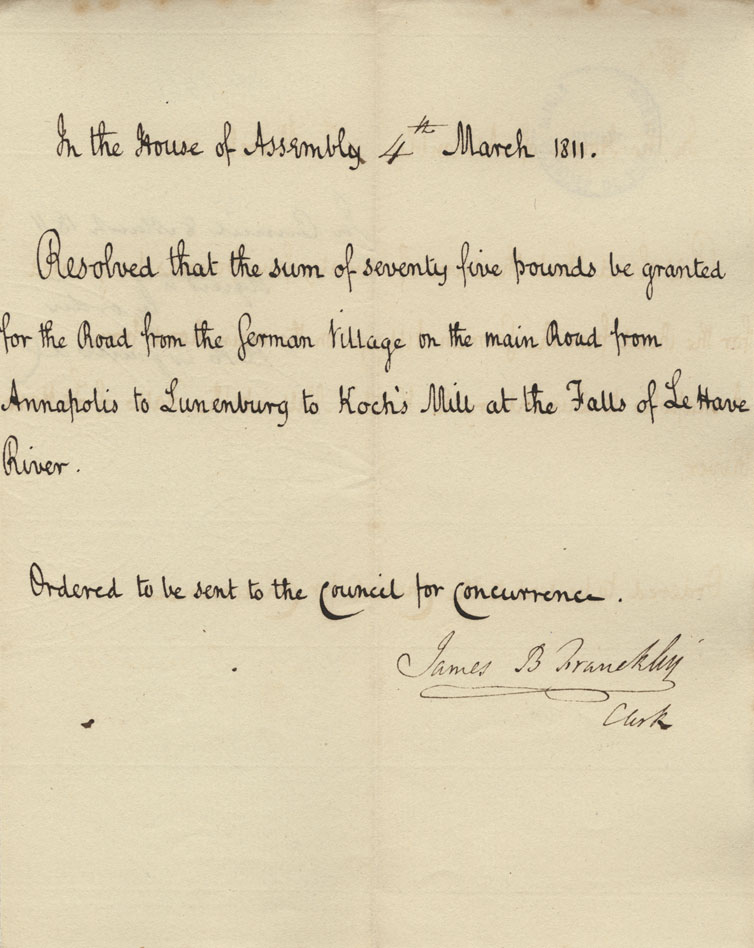 In the House of Assembly 4th March 1811.
Resolved that the sum of seventy five pounds be granted
for the Road from the German Village on the main Road from
Annapolis to Lunenburg to Koch's Mill at the Falls of Le Have
River.
Ordered to be sent to the Council for Concurrence.
James B Francklin
Clerk